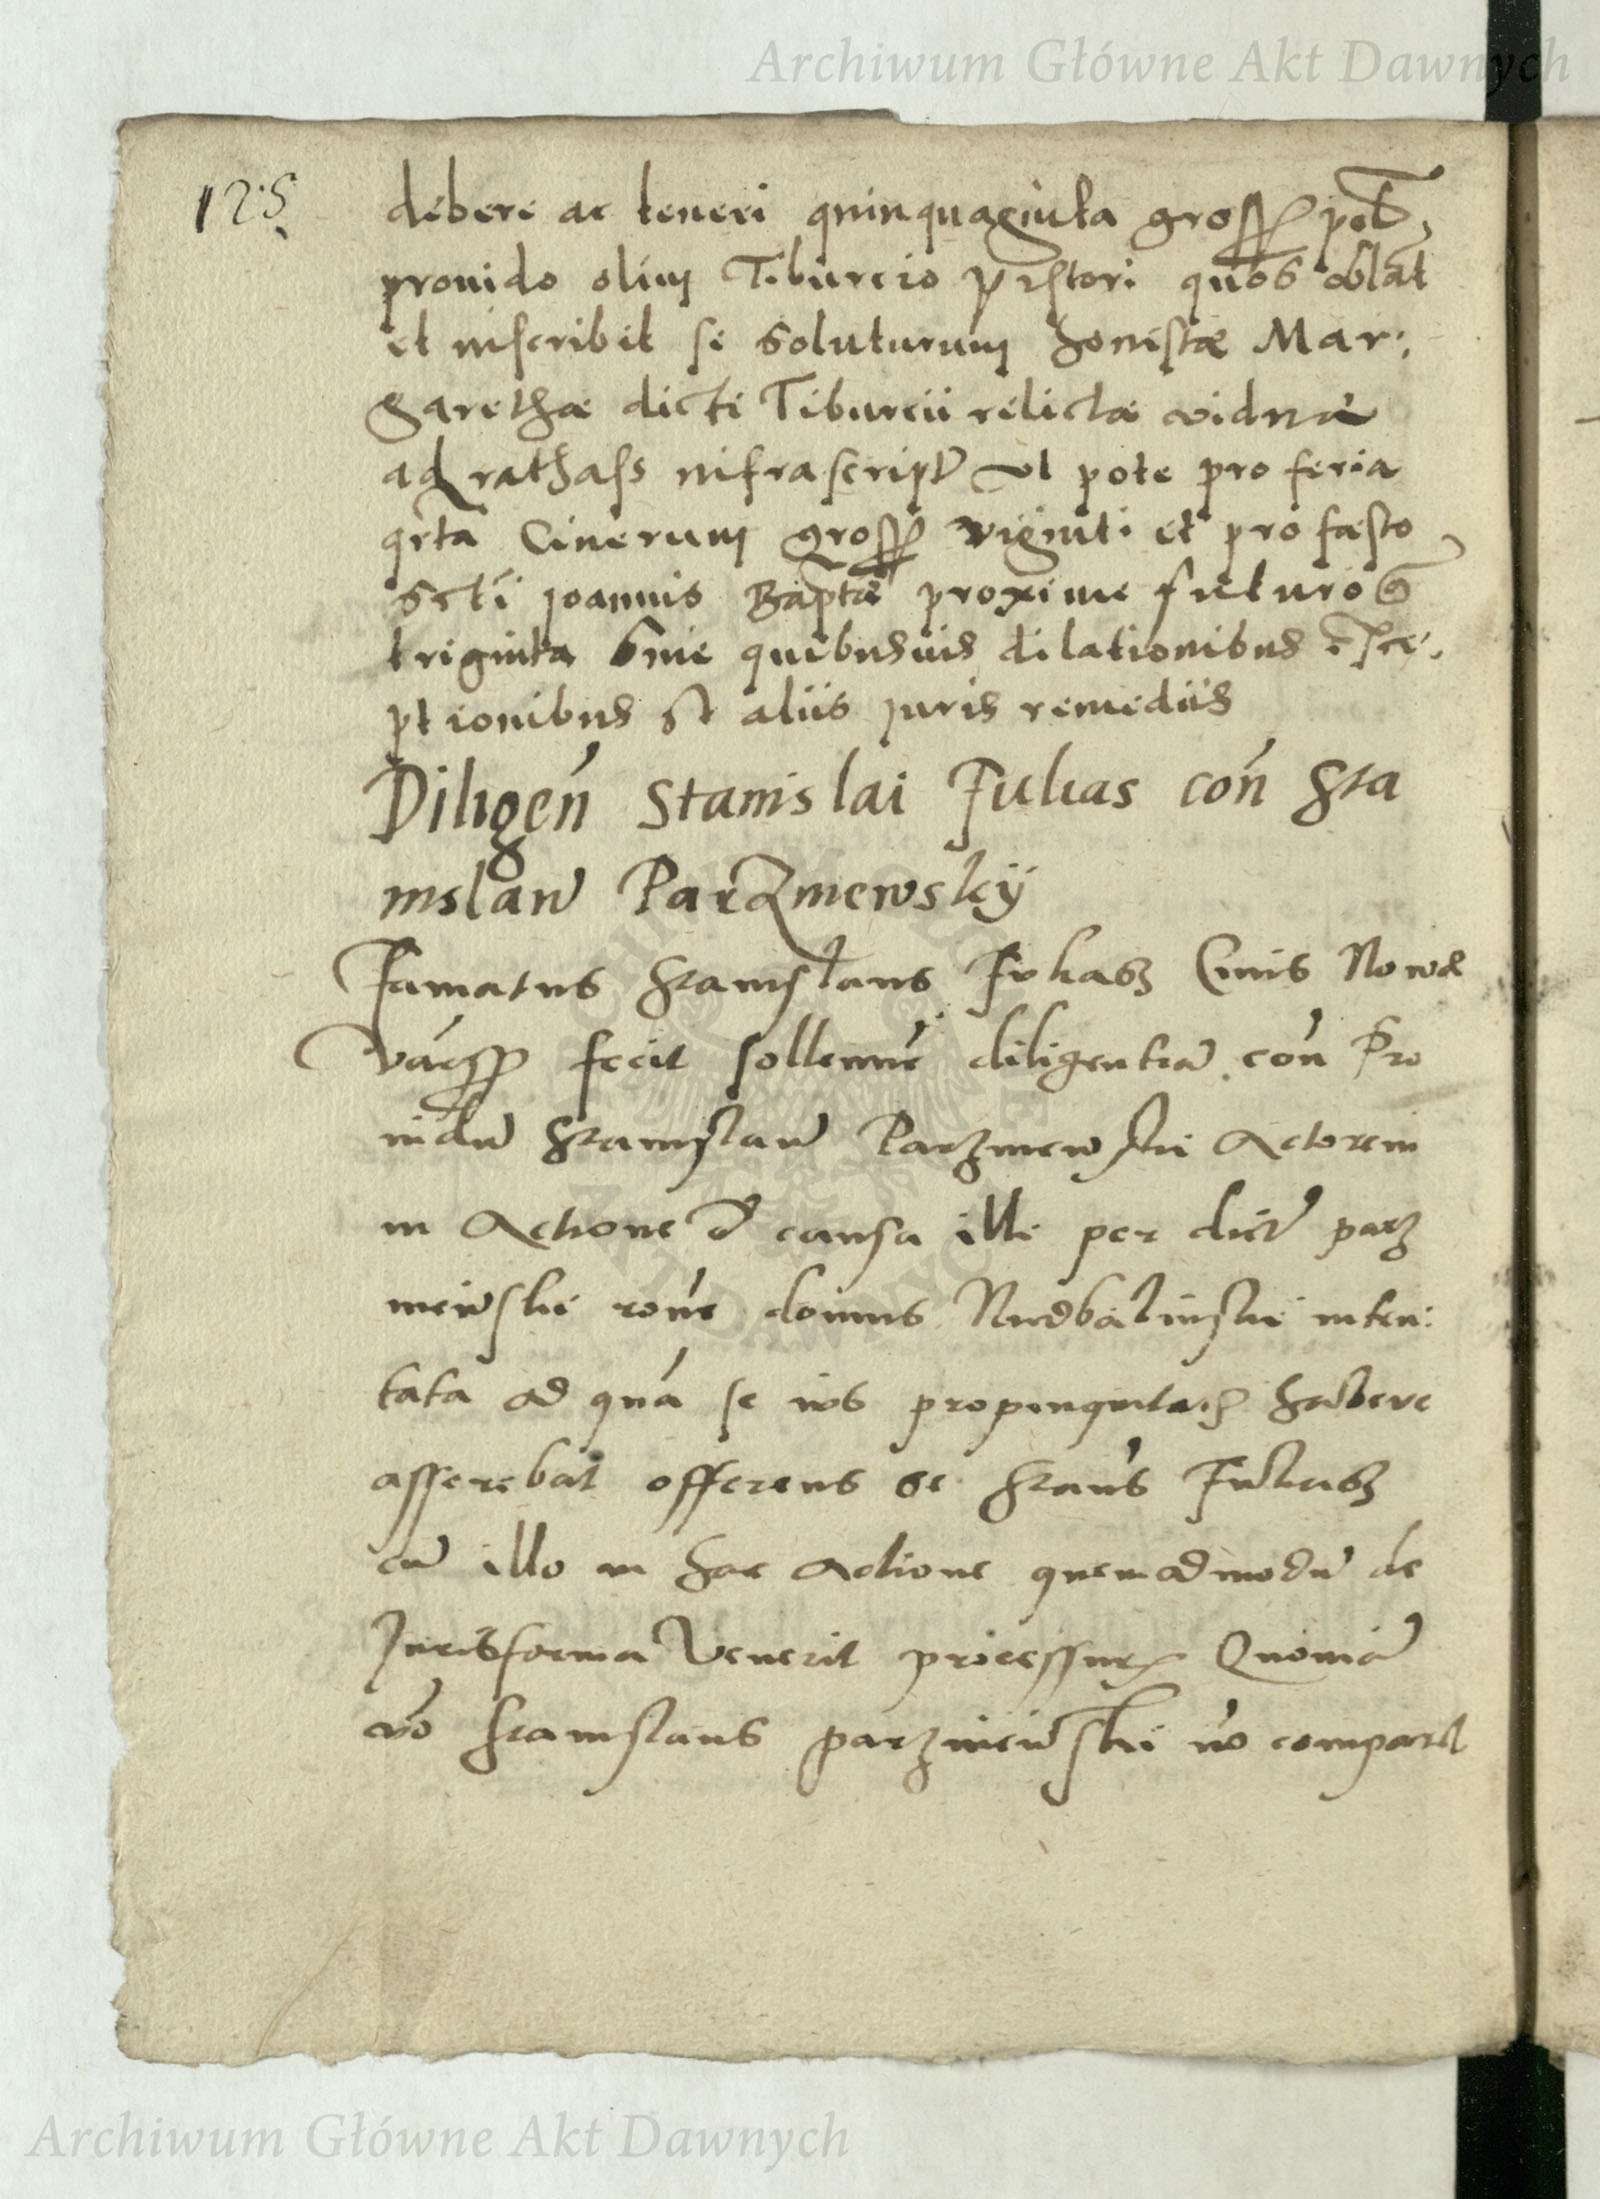 Archiwum Główne Akt Dawnych
125
debere ac teneri quinquaginta gross
prouido olim Tiburcio pistori quos oblat
et inscribit se soluturum honestæ Mar:
garethæ dicti Tiburcii relictæ viduæ
ad rathass infrascript ut pote pro feria
qrta Cinerum gross viginti et pro faesto
scti joannis Baptæ proxime futuro
triginta sine quibusuis dilationibus exce:
ptionibus et aliis juris remediis
Diligen Stanislai Fukas con Sta
nislaw Parzniewskÿ
Famatus Stanislaus Fukasz Ciuis Nowæ
Varss fecit sollenne diligentia con Pro
uidu Stanislau Parzniewski Actorem
in Actione et causa illi per dict parz
niewski rone domus inten:
tata ad qua se ius propinquitatis habere
asserebat offerens se Stans Fukasz
cu illo in hac Actione quemadmodu de
Juris forma Venerit processur Quonia
vo Stanislaus parzniewski no comparet
Archiwum Główne Akt Dawnych